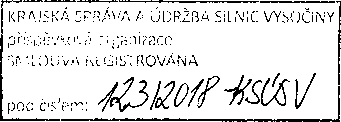 KRAJSKÁ SPRÁVA A ÚDRŽBA SILNIC VYSOČINY
příspěvková organizace
SMLOUVA REGISTROVÁNA
pod číslem: 123/2018 KSÚSV